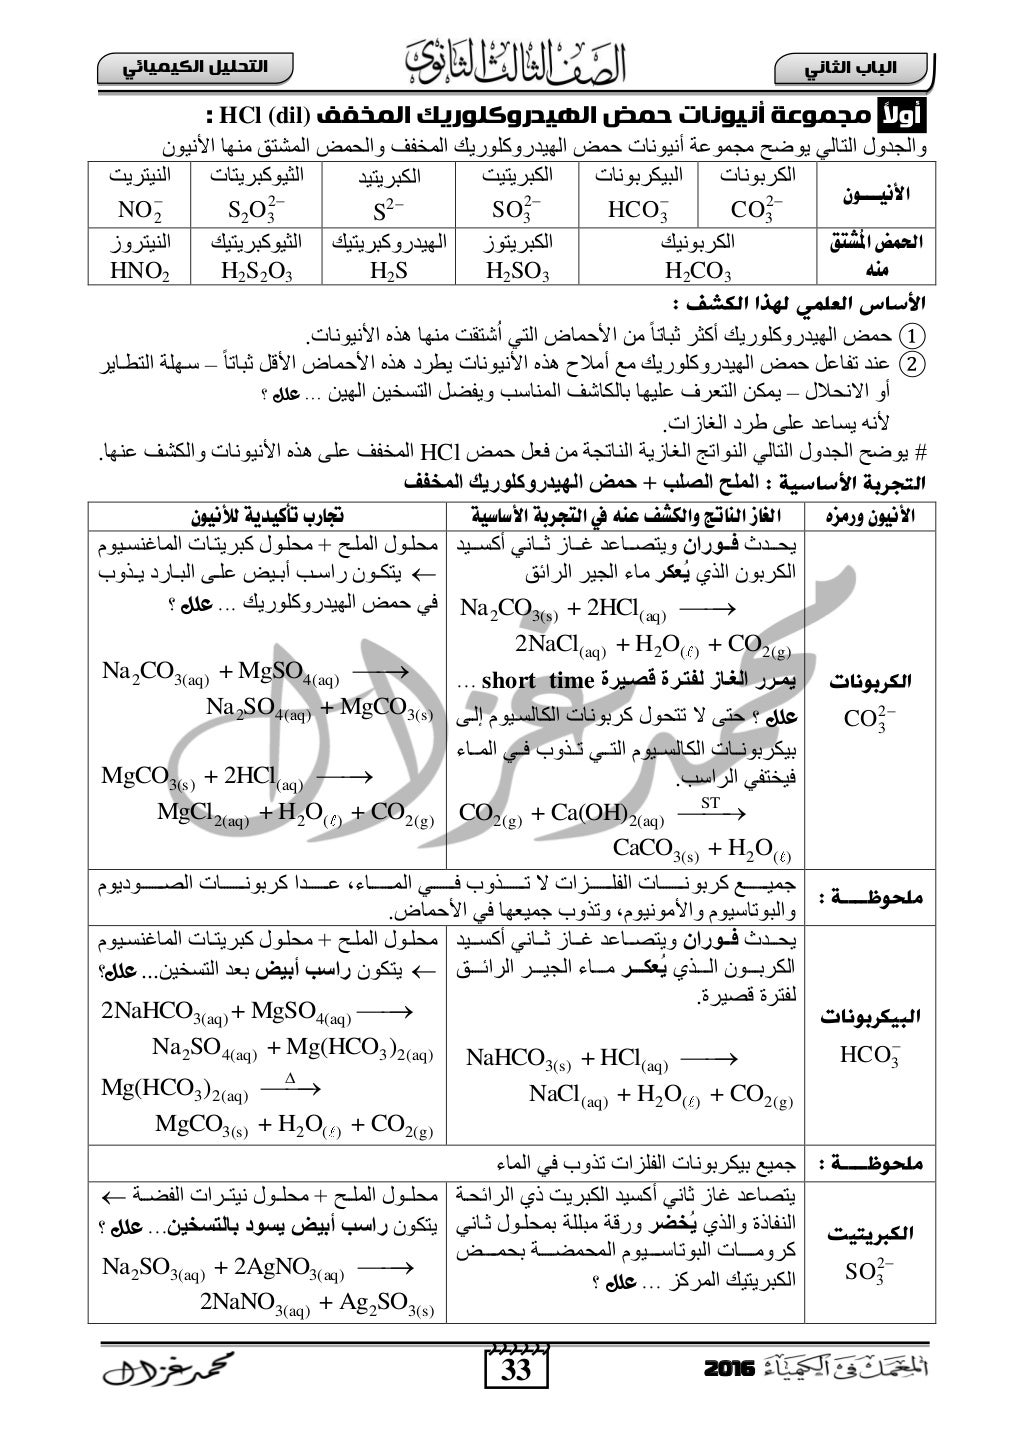 الباب الثاني
الصف الثالث الثانوى
التحليل الكيميائي
أولاً مجموعة أنيونات حمض الهيدروكلوريك المخفف HCl (dil) :
والجدول التالي يوضح مجموعة أنيونات حمض الهيدروكلوريك المخفف والحمض المشتق منها الأنيون
الأنيـــون
الكربونات
CO₃²⁻
البيكربونات
HCO₃⁻
الكبريتيت
SO₃²⁻
الكبريتيد
S²⁻
الثيوكبريتات
S₂O₃²⁻
النيتريت
NO₂⁻
الحمض المُشتق
منه
الكربونيك
H₂CO₃
الكبريتوز
H₂SO₃
الهيدروكبريتيك
H₂S
الثيوكبريتيك
H₂S₂O₃
النيتروز
HNO₂
الأساس العلمي لهذا الكشف :
① حمض الهيدروكلوريك أكثر ثباتاً من الأحماض التي اُشتقت منها هذه الأنيونات.
② عند تفاعل حمض الهيدروكلوريك مع أملاح هذه الأنيونات يطرد هذه الأحماض الأقل ثباتاً – سهلة التطاير
أو الانحلال – يمكن التعرف عليها بالكاشف المناسب ويفضل التسخين الهين ... علل ؟
لأنه يساعد على طرد الغازات.
# يوضح الجدول التالي النواتج الغازية الناتجة من فعل حمض HCl المخفف على هذه الأنيونات والكشف عنها.
التجربة الأساسية : الملح الصلب + حمض الهيدروكلوريك المخفف
الأنيون ورمزه
الغاز الناتج والكشف عنه في التجربة الأساسية
تجارب تأكيدية للأنيون
الكربونات
CO₃²⁻
يحدث فوران ويتصاعد غاز ثاني أكسيد
الكربون الذي يُعكر ماء الجير الرائق
Na₂CO₃(s) + 2HCl(aq) ⟶
2NaCl(aq) + H₂O(ℓ) + CO₂(g)
يمرر الغاز لفترة قصيرة short time ...
علل ؟ حتى لا تتحول كربونات الكالسيوم إلى
بيكربونات الكالسيوم التي تذوب في الماء
فيختفي الراسب.
CO₂(g) + Ca(OH)₂(aq) ⟶ ST
CaCO₃(s) + H₂O(ℓ)
محلول الملح + محلول كبريتات الماغنسيوم
← يتكون راسب أبيض على البارد يذوب
في حمض الهيدروكلوريك ... علل ؟
Na₂CO₃(aq) + MgSO₄(aq) ⟶
Na₂SO₄(aq) + MgCO₃(s)
MgCO₃(s) + 2HCl(aq) ⟶
MgCl₂(aq) + H₂O(ℓ) + CO₂(g)
ملحوظـــة :
جميع كربونات الفلزات لا تذوب في الماء، عدا كربونات الصوديوم
والبوتاسيوم والأمونيوم، وتذوب جميعها في الأحماض.
البيكربونات
HCO₃⁻
يحدث فوران ويتصاعد غاز ثاني أكسيد
الكربون الذي يُعكر ماء الجير الرائق
لفترة قصيرة.
NaHCO₃(s) + HCl(aq) ⟶
NaCl(aq) + H₂O(ℓ) + CO₂(g)
محلول الملح + محلول كبريتات الماغنسيوم
← يتكون راسب أبيض بعد التسخين... علل؟
2NaHCO₃(aq) + MgSO₄(aq) ⟶
Na₂SO₄(aq) + Mg(HCO₃)₂(aq)
Mg(HCO₃)₂(aq) ⟶ Δ
MgCO₃(s) + H₂O(ℓ) + CO₂(g)
ملحوظـــة :
جميع بيكربونات الفلزات تذوب في الماء
الكبريتيت
SO₃²⁻
يتصاعد غاز ثاني أكسيد الكبريت ذي الرائحة
النفاذة والذي يُخضر ورقة مبللة بمحلول ثاني
كرومات البوتاسيوم المحمضة بحمض
الكبريتيك المركز ... علل ؟
محلول الملح + محلول نيترات الفضة ←
يتكون راسب أبيض يسود بالتسخين... علل ؟
Na₂SO₃(aq) + 2AgNO₃(aq) ⟶
2NaNO₃(aq) + Ag₂SO₃(s)
محمد غزال
المعمل فى الكيمياء 2016
33
محمد غزال